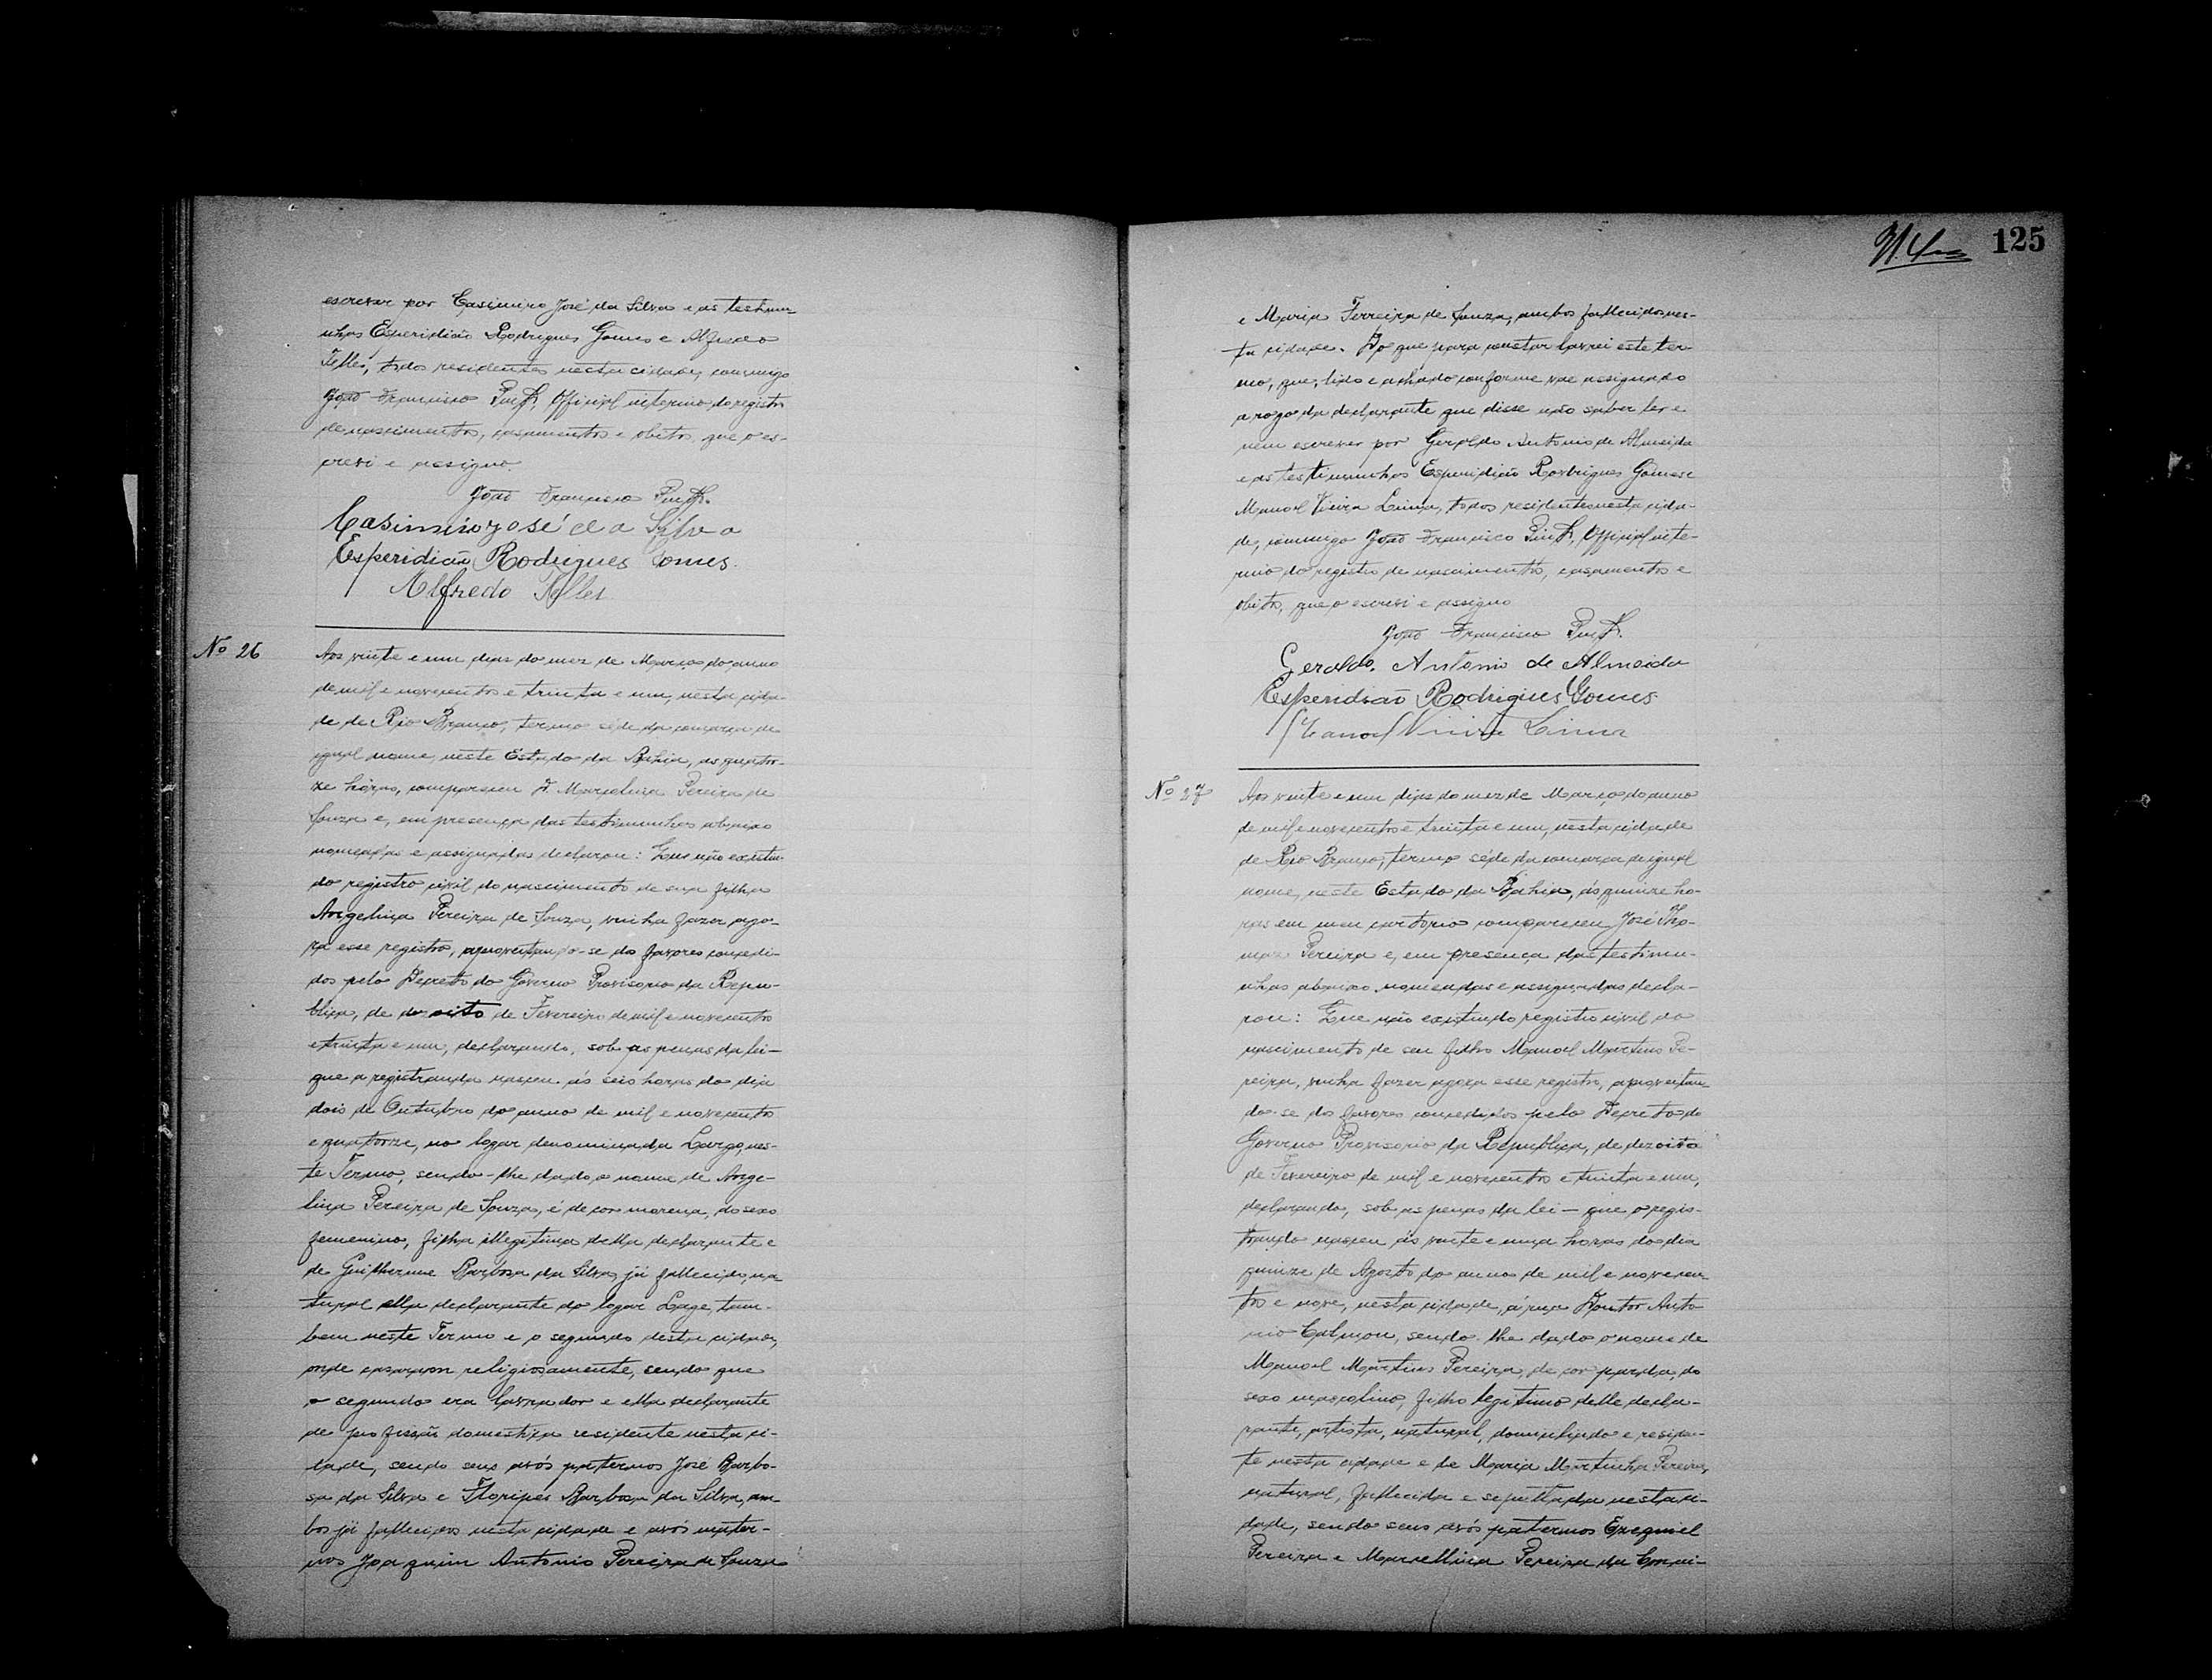 escrever por Casimiro José da Silva e as testemu-
nhas Esperidião Rodrigues Gomes e Alfredo
Telles, todos residentes nesta cidade, commigo
João Francisco Official interino do registro
de nascimentos, casamentos e obitos, que o es-
crevi e assigno.
João Francisco
Casimiro José da Silva
Esperidião Rodrigues Gomes.
Alfredo Telles
Nº 26
Aos vinte e um dias do mez de Março do anno
de mil e novecentos e trinta e um, nesta cida-
de de Rio Branco, termo séde da comarca de
igual nome, neste Estado da Bahia, as quator-
ze horas, compareceu D. Marcolina Pereira de
Souza e, em presença das testimunhas abaixo
nomeadas e assignadas declarou: Que não existin-
do registro civil do nascimento de sua filha
Angelina Pereira de Souza, vinha fazer ago-
ra esse registro, aproveitando-se dos favores concedi-
dos pelo Decreto do Governo Provisorio da Repu-
blica, de dezoito de Fevereiro de mil e novecentos
e trinta e um, declarando, sob as penas da lei —
que a registranda nasceu ás seis horas do dia
dois de Outubro do anno de mil e novecentos
e quatorze, no logar denominada Largo, nes-
te Termo, sendo-lhe dado o nome de Ange-
lina Pereira de Souza, é de cor morena, do sexo
femenino, filha illegitima della declarante e
de Guilherme Barbosa da Silva, já fallecido, na-
tural ella declarante do logar Lage, tam-
bem neste Termo e o segundo desta cidade,
onde casaram religiosamente, sendo que
o segundo era lavrador e ella declarante
de profissão domestica residente nesta ci-
dade, sendo seus avós paternos José Barbo-
sa da Silva e Floripes Barbosa da Silva, am-
bos já fallecidos nesta cidade e avós mater-
nos Joaquim Antonio Pereira de Souza
125
e Maria Ferreira de Souza, ambos fallecidos nes-
ta cidade. Do que para constar lavrei este ter-
mo, que, lido e achado conforme vae assignado
a rogo da declarante que disse não saber ler e
nem escrever por Geraldo Antonio de Almeida
e as testimunhas Esperidião Rodrigues Gomes e
Manoel Vieira Lima, todos residentes nesta cida-
de, commigo João Francisco Official inte-
rino do registro de nascimentos, casamentos e
obitos, que o escrevi e assigno
João Francisco
Geraldo Antonio de Almeida
Esperidião Rodrigues Gomes
Manoel Vieira Lima
Nº 27
Aos vinte e um dias do mez de Março do anno
de mil e novecentos e trinta e um, nesta cidade
de Rio Branco, termo séde da comarca de igual
nome, neste Estado da Bahia, ás quinze ho-
ras em meu cartorio compareceu José Tho-
maz Pereira e, em presença das testimu-
nhas abaixo nomeadas e assignadas decla-
rou: Que não existindo registro civil do
nascimento de seu filho Manoel Martins Pe-
reira, vinha fazer agora esse registro, aproveitan-
do-se dos favores concedidos pelo Decreto do
Governo Provisorio da Republica, de dezoito
de Fevereiro de mil e novecentos e trinta e um,
declarando, sob as penas da lei — que o regis-
trando nasceu ás vinte e uma horas do dia
quinze de Agosto do anno de mil e novecen-
tos e nove, nesta cidade, á rua Doutor Anto-
nio Calmon, sendo-lhe dado o nome de
Manoel Martins Pereira, de cor parda, do
sexo masculino, filho legitimo delle decla-
rante, artista, natural, domiciliado e residen-
te nesta cidade e de Maria Martinha Pereira,
natural, fallecida e sepultada nesta ci-
dade, sendo seus avós paternos Ezequiel
Pereira e Marcellina Pereira da